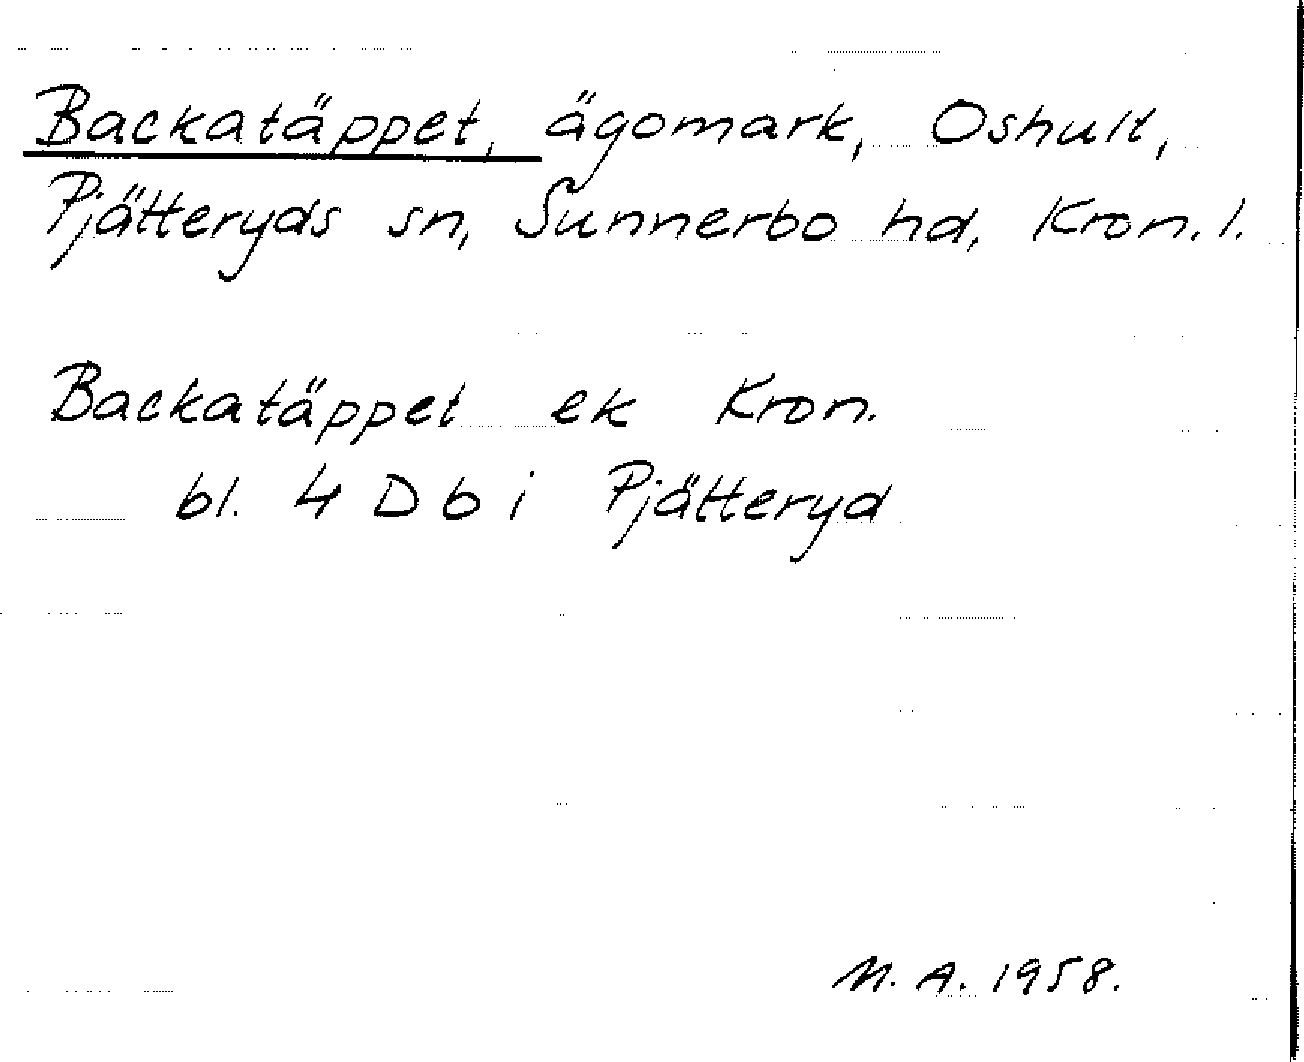 Backatäppet, ägomark, Oshult,
Pjätteryds sn, Sunnerbo hd, Kron. l.
Backatäppet ek Kron.
bl. 4 D b i Pjätteryd
M. A. 1958.